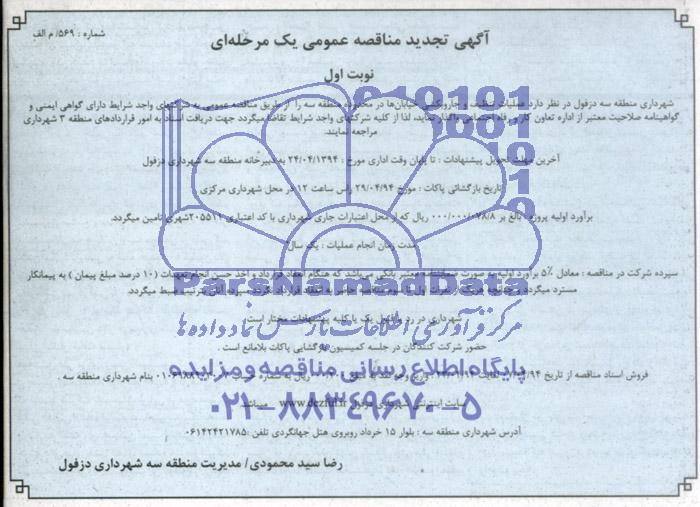 شماره : ۵۶۹/ م الف
آگهی تجدید مناقصه عمومی یک مرحله‌ای
نوبت اول
شهرداری منطقه سه دزفول در نظر دارد عملیات تنظیف و جاروکشی خیابان‌ها در محدوده منطقه سه را از طریق مناقصه عمومی به شرکتهای واجد شرایط دارای گواهی ایمنی و
گواهینامه صلاحیت معتبر از اداره تعاون کار و رفاه اجتماعی واگذار نماید، لذا از کلیه شرکتهای واجد شرایط تقاضا میگردد جهت دریافت اسناد به امور قراردادهای منطقه ۳ شهرداری
مراجعه نمایند.
آخرین مهلت تحویل پیشنهادات : تا پایان وقت اداری مورخ : ۲۴/۰۴/۱۳۹۴ به دبیرخانه منطقه سه شهرداری دزفول
تاریخ بازگشائی پاکات : مورخ ۲۹/۰۴/۹۴ راس ساعت ۱۲ در محل شهرداری مرکزی
برآورد اولیه پروژه : بالغ بر ریال که از محل اعتبارات جاری شهرداری با کد اعتباری ۲۰۵۵۱۱ شهری تامین میگردد.
مدت زمان انجام عملیات : یک سال
سپرده شرکت در مناقصه : معادل ۵٪ برآورد اولیه به صورت ضمانتنامه معتبر بانکی می‌باشد که هنگام انعقاد قرارداد و اخذ حسن انجام تعهدات (۱۰ درصد مبلغ پیمان ) به پیمانکار
مسترد میگردد و چنانچه به ترتیب ضبط میگردد.
شهرداری در رد یا قبول یک یا کلیه پیشنهادات مختار است .
حضور شرکت کنندگان در جلسه کمیسیون بازگشایی پاکات بلامانع است .
فروش اسناد مناقصه از تاریخ ریال به شماره بنام شهرداری منطقه سه .
سایت اینترنتی شهرداری دزفول www.dezful.ir میباشد.
آدرس شهرداری منطقه سه : بلوار ۱۵ خرداد روبروی هتل جهانگردی تلفن :۰۶۱۴۲۴۲۱۷۸۵
رضا سید محمودی/ مدیریت منطقه سه شهرداری دزفول
ParsNamadData
مرکز فرآوری اطلاعات پارس نماد داده ها
پایگاه اطلاع رسانی مناقصه و مزایده
۰۲۱-۸۸۳۴۹۶۷۰-۵